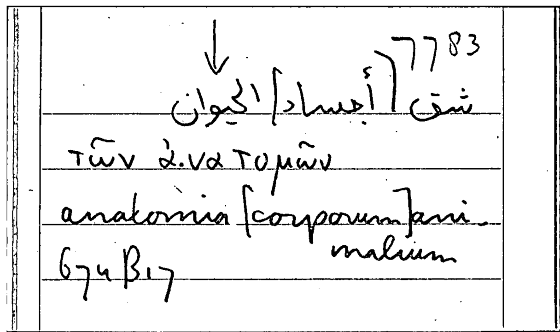 7783
شق [أجساد] الحيوان
τῶν ἀ.να τομῶν
anatomia [corporum] ani-
malium
674 B17